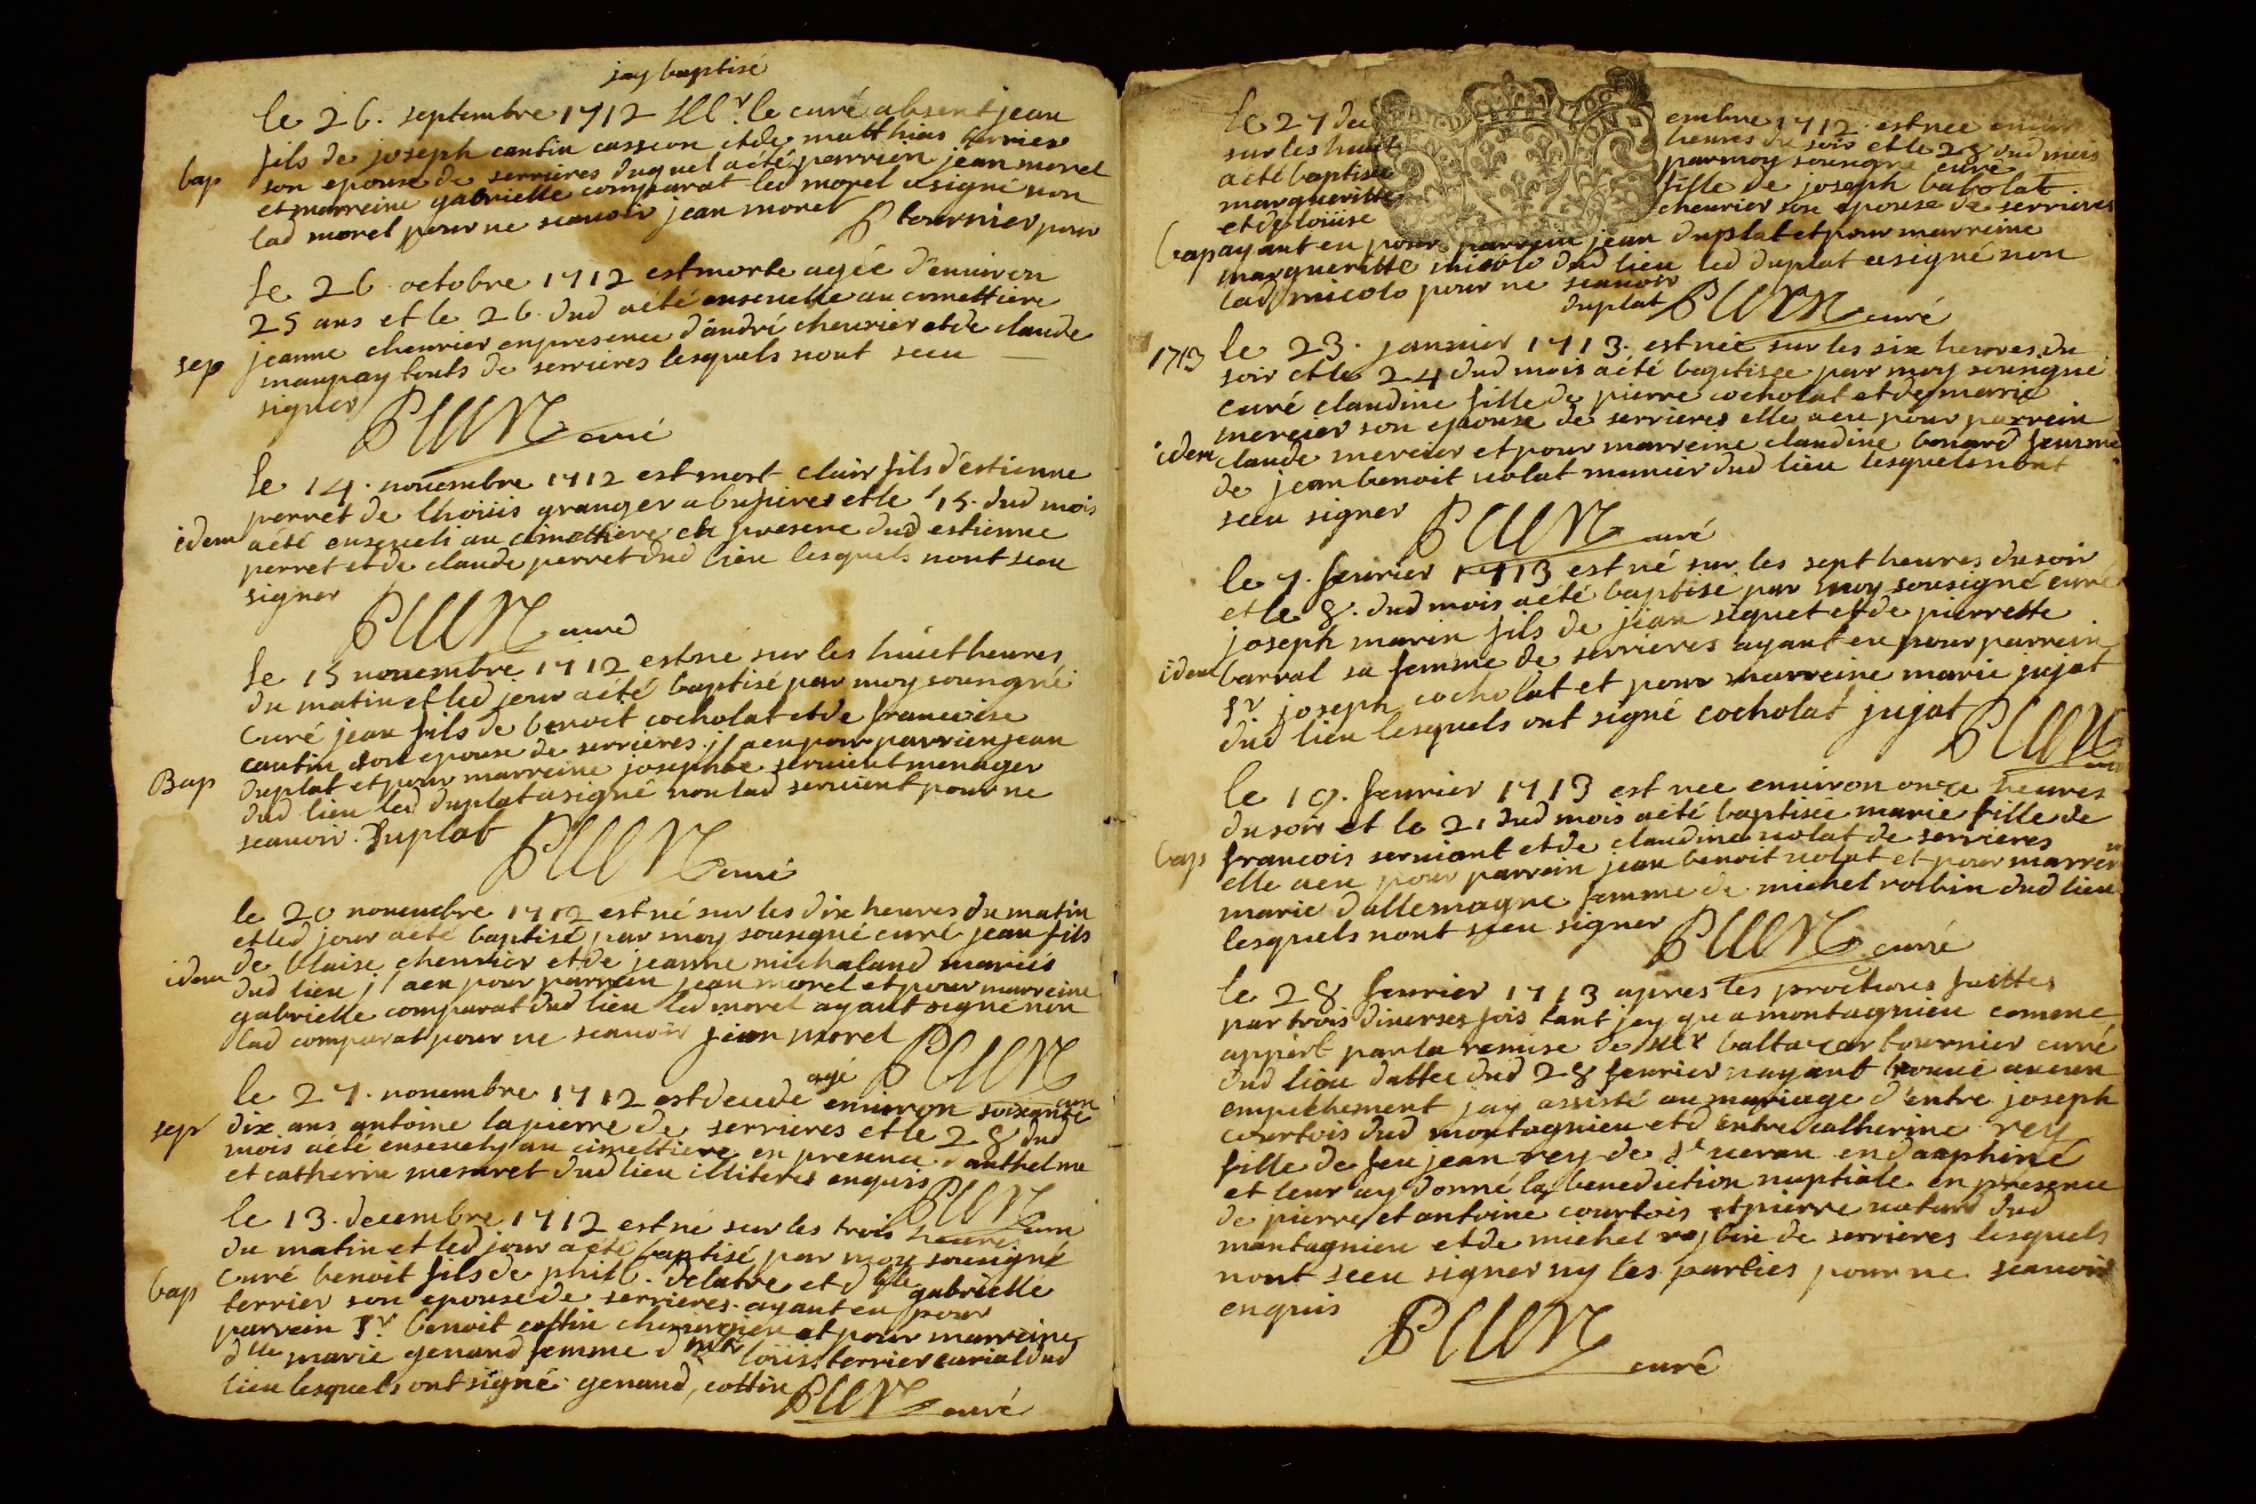 jay baptisé
le 26. septembre 1712 Mr. le curé absent jean
fils de joseph cantin casseon et de matthias terrier
bap son epouse de serrieres duquel a été parrein jean morel
et marreine gabrielle comparat led morel a signé non
lad morel pour ne scauoir jean morel B tournier pour
le 26 octobre 1712 est morte agée d'enuiron
25 ans et le 26. dud a été enseuelie au cimettiere
sep jeanne cheurier en presence d'andré cheurier et de claude
maupay touts de serrieres lesquels nont sceu
signer
curé
le 14. nouembre 1712 est mort clair fils d'estienne
perret de lhoüis granger a bufieres et le 15. dud mois
idem a été enseueli au cimettiere en presence dud estienne
perret et de claude perret dud lieu lesquels nont sceu
signer
curé
le 15 nouembre 1712 est né sur les huict heures
du matin et led jour a été baptisé par moy sousigné
curé jean fils de benoit cocholat et de francoise
cantin son epouse de serrieres. il a eu pour parrien jean
Bap duplat et pour marreine josephte seruient menager
dud lieu led duplat a signé non lad seruient pour ne
scauoir. duplat
curé
le 20 nouembre 1712 est né sur les dix heures du matin
et led jour a été baptisé par moy sousigné curé jean fils
idem de blaise cheurier et de jeanne michaland mariés
dud lieu il a eu pour parrein jean morel et pour marreine
gabrielle comparat dud lieu led morel ayant signé non
lad comparat pour ne scauoir jean morel
curé
agé
le 27. nouembre 1712 est decede enuiron soixante
sep dix ans antoine lapierre de serrieres et le 28 dud
mois a été enseuely au cimettiere en presence d'anthelme
et catherin mesuret dud lieu illiteres enquis
curé
le 13. decembre 1712 est né sur les trois heures
du matin et led jour a été baptisé par moy sousigné
curé benoit fils de phil. delatre et d lle gabrielle
bap terrier son epouse de serrieres. ayant eu pour
parrein Sr. benoit cottin chirurgien et pour marreine
dlle marie genand femme d Mr loüis terrier curial dud
lieu lesquels ont signé. genand, cottin
curé
le 27 de embre 1712 est née enuiron
sur les huict heures du soir et le 28 dud mois
a été baptisée par moy sousigné curé
margueritte fille de joseph babolat
et de loüise cheurier son epouse de serrieres
bap ayant eu pour parrein jean duplat et pour marreine
margueritte micolo dud lieu led duplat a signé non
lad micolo pour ne scauoir
duplat
curé
1713 le 23. januier 1713. est née sur les six heures du
soir et le 24 dud mois a été baptisée par moy sousigné
curé claudine fille de pierre cocholat et de marie
mercier son epouse de serrieres elle a eu pour parrein
idem claude mercier et pour marreine claudine bonard femme
de jean benoit uolat munier dud lieu lesquels nont
sceu signer
curé
le 7. feurier 1713 est né sur les sept heures du soir
et le 8. dud mois a été baptisé par moy sousigné curé
joseph marin fils de jean siquet et de pierrette
idem barral sa femme de serrieres ayant eu pour parrein
Sr joseph cocholat et pour marreine marie jujat
dud lieu lesquels ont signé cocholat jujat
le 19. feurier 1713 est née enuiron onze heures
du soir et le 21 dud mois a été baptisée marie fille de
bap francois seruiant et de claudine uolat de serrieres
elle a eu pour parrein jean benoit uolat et pour marrein
marie d'allemagne femme de michel robbin dud lieu
lesquels nont sceu signer
curé
le 28 feurier 1713 apres les proclãons faittes
par trois diuerses fois tant jcy qu a montagnieu comme
appert par la remise de Mer baltazar tournier curé
dud lieu dattee dud 28 feurier nayant trouué aucun
empechement jay assisté au mariage d'entre joseph
courtois dud montagnieu et d'entre catherine rey
fille de feu jean rey de St ueran en dauphiné
et leur ay donné la benediction nuptiale en presence
de pierre et antoine courtois et pierre dud
montagnieu et de michel robbin de serrieres lesquels
nont sceu signer ny les parties pour ne scauoir
enquis
curé